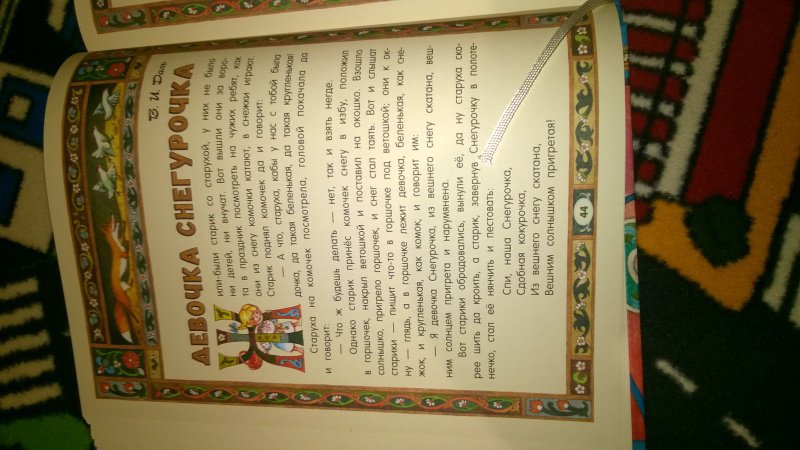 В. И. Даль
ДЕВОЧКА СНЕГУРОЧКА
Жили-были старик со старухой, у них не было
ни детей, ни внучат. Вот вышли они за воро-
та в праздник посмотреть на чужих ребят, как
они из снегу комочки катают, в снежки играют.
Старик поднял комочек да и говорит:
— А что, старуха, кабы у нас с тобой была
дочка, да такая беленькая, да такая кругленькая!
Старуха на комочек посмотрела, головой покачала да
и говорит:
— Что ж будешь делать — нет, так и взять негде.
Однако старик принёс комочек снегу в избу, положил
в горшочек, накрыл ветошкой и поставил на окошко. Взошло
солнышко, пригрело горшочек, и снег стал таять. Вот и слышат
старики — пищит что-то в горшочке под ветошкой; они к ок-
ну — глядь, а в горшочке лежит девочка, беленькая, как сне-
жок, и кругленькая, как комок, и говорит им:
— Я девочка Снегурочка, из вешнего снегу скатана, веш-
ним солнцем пригрета и нарумянена.
Вот старики обрадовались, вынули её, да ну старуха ско-
рее шить да кроить, а старик, завернув Снегурочку в полоте-
нечко, стал её нянчить и пестовать:
Спи, наша Снегурочка,
Сдобная кокурочка,
Из вешнего снегу скатана,
Вешним солнышком пригретая!
44